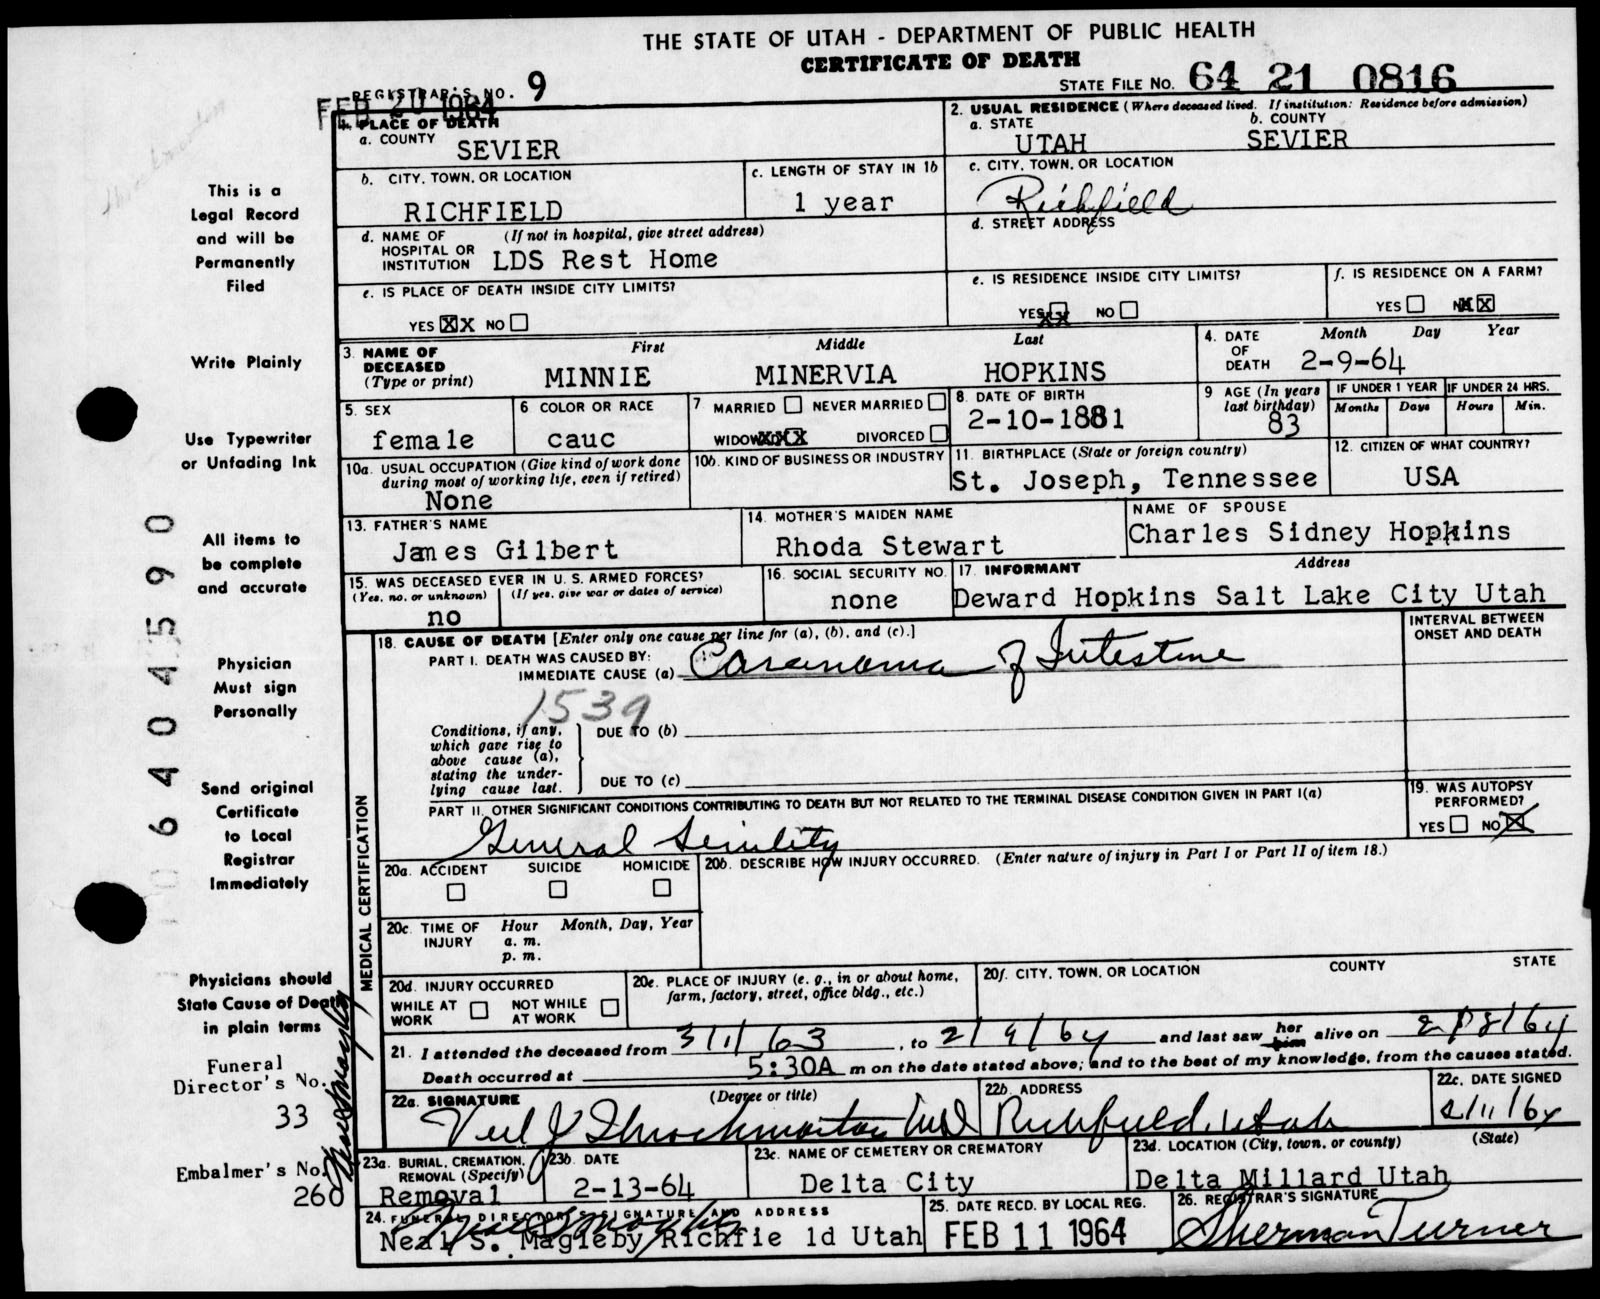 THE STATE OF UTAH - DEPARTMENT OF PUBLIC HEALTH
CERTIFICATE OF DEATH
REGISTRAR'S NO. 9
STATE FILE NO. 64 21 0816
FEB 20 1964
1. PLACE OF DEATH
a. COUNTY SEVIER
2. USUAL RESIDENCE (Where deceased lived. If institution: Residence before admission)
a. STATE UTAH
b. COUNTY SEVIER
b. CITY, TOWN, OR LOCATION RICHFIELD
c. LENGTH OF STAY IN 1b 1 year
c. CITY, TOWN, OR LOCATION Richfield
d. NAME OF HOSPITAL OR INSTITUTION (If not in hospital, give street address) LDS Rest Home
d. STREET ADDRESS
e. IS PLACE OF DEATH INSIDE CITY LIMITS?
YES XX NO
e. IS RESIDENCE INSIDE CITY LIMITS?
YES XX NO
f. IS RESIDENCE ON A FARM?
YES NO XX
3. NAME OF DECEASED (Type or print)
First Middle Last
MINNIE MINERVIA HOPKINS
4. DATE OF DEATH Month Day Year
2-9-64
5. SEX female
6 COLOR OR RACE cauc
7 MARRIED NEVER MARRIED
WIDOWED XXX DIVORCED
8. DATE OF BIRTH 2-10-1881
9 AGE (In years last birthday) 83
IF UNDER 1 YEAR Months Days
IF UNDER 24 HRS. Hours Min.
10a. USUAL OCCUPATION (Give kind of work done during most of working life, even if retired) None
10b. KIND OF BUSINESS OR INDUSTRY
11. BIRTHPLACE (State or foreign country) St. Joseph, Tennessee
12. CITIZEN OF WHAT COUNTRY? USA
13. FATHER'S NAME James Gilbert
14. MOTHER'S MAIDEN NAME Rhoda Stewart
NAME OF SPOUSE Charles Sidney Hopkins
15. WAS DECEASED EVER IN U. S. ARMED FORCES?
(Yes, no, or unknown) (If yes, give war or dates of service)
no
16. SOCIAL SECURITY NO. none
17. INFORMANT Address
Deward Hopkins Salt Lake City Utah
MEDICAL CERTIFICATION
18. CAUSE OF DEATH [Enter only one cause per line for (a), (b), and (c).]
INTERVAL BETWEEN ONSET AND DEATH
PART I. DEATH WAS CAUSED BY:
IMMEDIATE CAUSE (a) Carcinoma of Intestine
1539
Conditions, if any, which gave rise to above cause (a), stating the underlying cause last.
DUE TO (b)
DUE TO (c)
PART II. OTHER SIGNIFICANT CONDITIONS CONTRIBUTING TO DEATH BUT NOT RELATED TO THE TERMINAL DISEASE CONDITION GIVEN IN PART I(a)
General Senility
19. WAS AUTOPSY PERFORMED?
YES NO X
20a. ACCIDENT SUICIDE HOMICIDE
20b. DESCRIBE HOW INJURY OCCURRED. (Enter nature of injury in Part I or Part II of item 18.)
20c. TIME OF INJURY Hour Month, Day, Year
a. m.
p. m.
20d. INJURY OCCURRED
WHILE AT WORK NOT WHILE AT WORK
20e. PLACE OF INJURY (e. g., in or about home, farm, factory, street, office bldg., etc.)
20f. CITY, TOWN, OR LOCATION COUNTY STATE
21. I attended the deceased from 3/1/63, to 2/9/64 and last saw her him alive on 2/8/64
Death occurred at 5:30A m on the date stated above; and to the best of my knowledge, from the causes stated.
22a. SIGNATURE (Degree or title)
Veil J Throckmorton MD
22b. ADDRESS Richfield, Utah
22c. DATE SIGNED 2/11/64
23a. BURIAL, CREMATION, REMOVAL (Specify) Removal
23b. DATE 2-13-64
23c. NAME OF CEMETERY OR CREMATORY Delta City
23d. LOCATION (City, town, or county) (State)
Delta Millard Utah
24. FUNERAL DIRECTOR'S SIGNATURE AND ADDRESS
Neal S. Magleby Richfie ld Utah
25. DATE RECD. BY LOCAL REG. FEB 11 1964
26. REGISTRAR'S SIGNATURE
Sherman Turner
This is a
Legal Record
and will be
Permanently
Filed
Write Plainly
Use Typewriter
or Unfading Ink
All items to
be complete
and accurate
Physician
Must sign
Personally
Send original
Certificate
to Local
Registrar
Immediately
Physicians should
State Cause of Death
in plain terms
Funeral
Director's No.
33
Embalmer's No.
260
640 4590